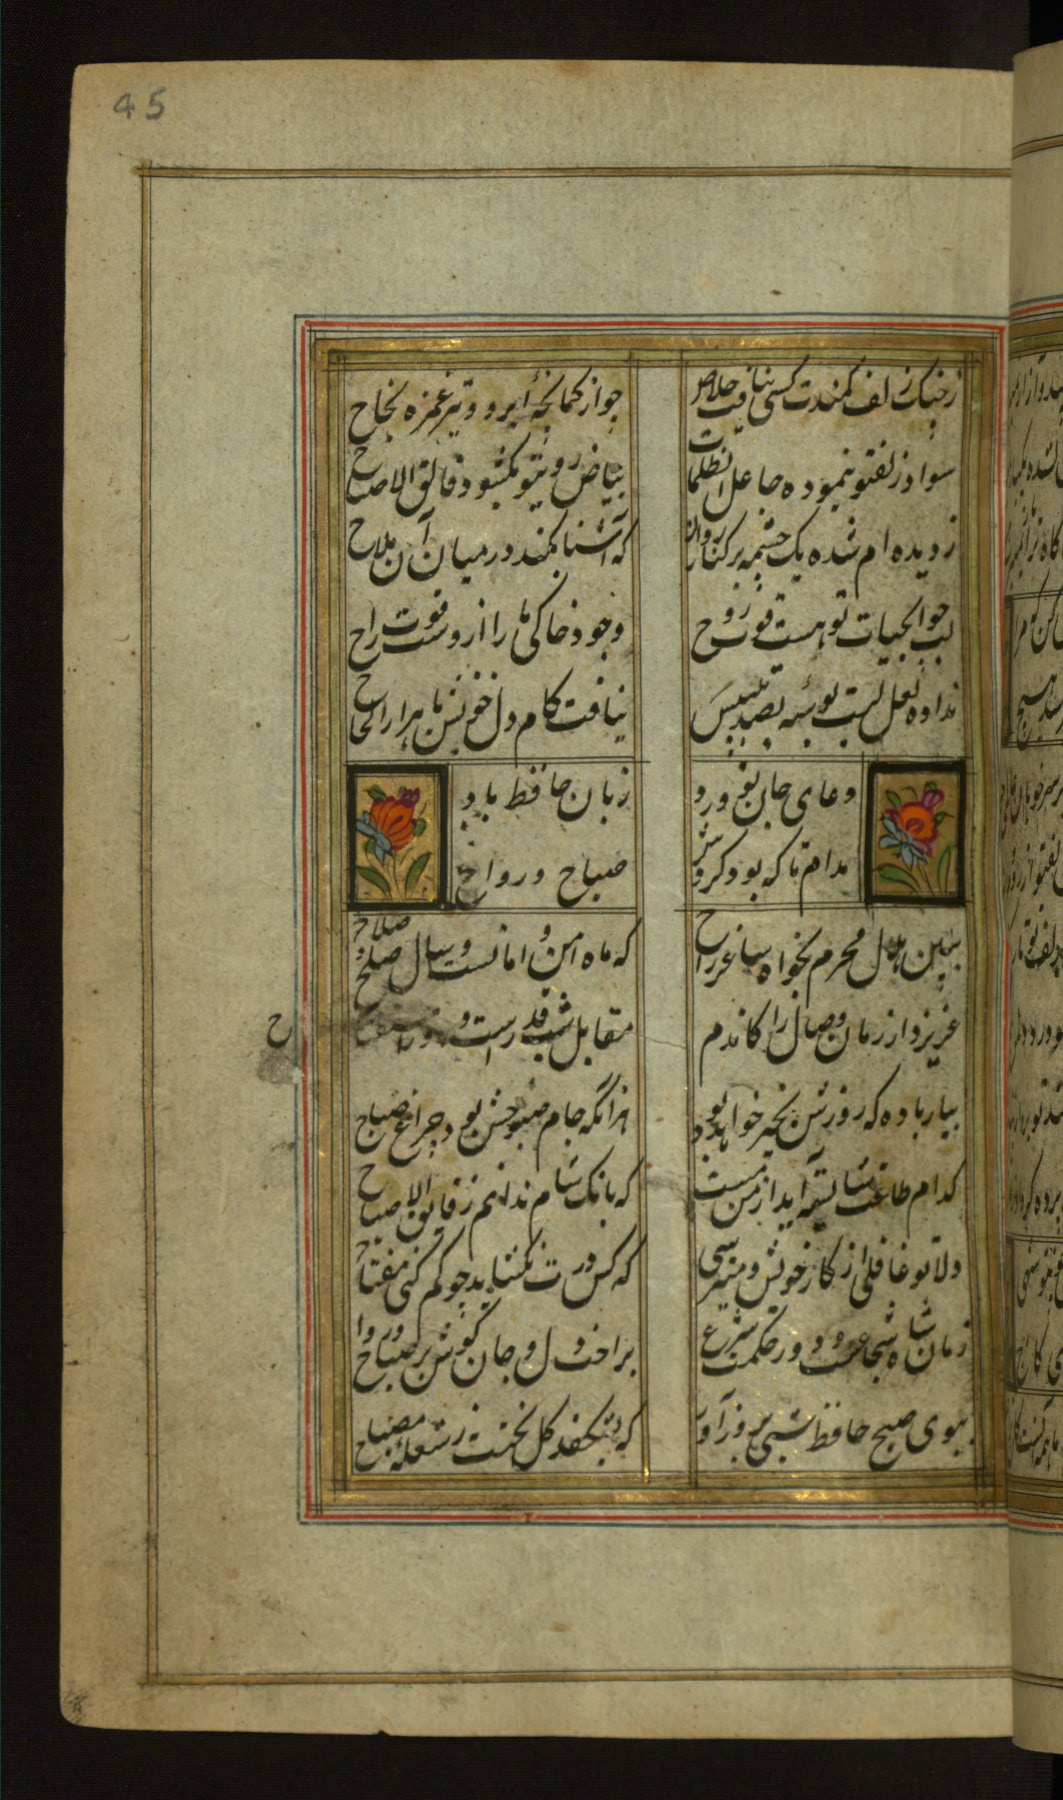 45
ز چنگ زلف کمندت کسی نیافت خلاص
چو از کمانچهٔ ابرو و تیر غمزه نجاح
سواد زلف تو بنموده جاعل الظلمات
بیاض روی تو بگشود فالق الاصباح
ز دیده ام شده یک چشمه بر کنار روان
که آشنا نکند در میان آن ملاح
لب چو آب حیات تو هست قوت روح
وجود خاکی ما را از روست قوت راح
نداده لعل لبت بوسهٔ بصد تلبیس
نیافت کام دل خویش با هزار الحاح
دعای جان تو ورد
زبان حافظ باد
مدام تا که بود گردش
صباح و رواح
ببین هلال محرم بخواه ساغر راح
که ماه امن و امانست و سال صلح و صلاح
عزیز دار زمان وصال را کاندم
مقابل شب قدر است و روز
ح
بیار باده که روزش بخیر خواهد بود
هر آنکه جام صبوحش بود چراغ صباح
کدام طاعت شایسته آید از من مست
که بانگ شام ندانم ز فالق الاصباح
دلا تو غافلی از کار خویش و میترسی
که کس درت نگشاید چو گم کنی مفتاح
زمان شاه شجاعست و دور حکمت شرع
براحت دل و جان کوش در صباح و رواح
ببوی صبح حافظ شبی بروز آور
که بشکفد گل بختت ز شعلهٔ مصباح